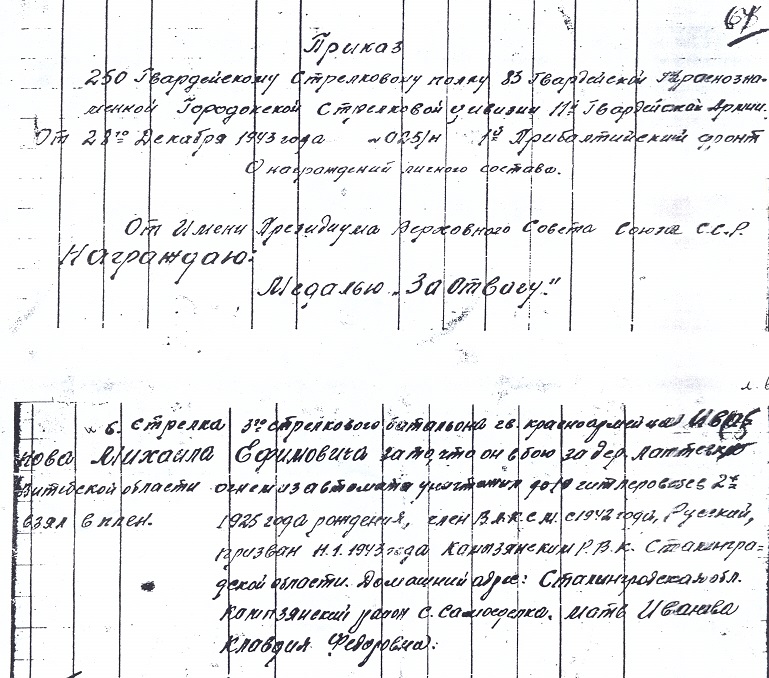 67
Приказ
250 Гвардейскому Стрелковому полку 83 Гвардейской Краснозна-
менной Городокской Стрелковой дивизии 11й Гвардейской Армии.
От 28го Декабря 1943 года №025/н 1й Прибалтийский фронт
О награждений личного состава.
От Имени Президиума Верховного Совета Союза С.С.Р.
Награждаю:
Медалью „За Отвагу"
6. Стрелка 3го стрелкового батальона гв. красноармейца Ива
нова Михаила Ефимовича за то, что он в бою за дер.
Витебской области огнем из автомата уничтожил до 10 гитлеровцев 2х
взял в плен. 1925 года рождения, член В.Л.К.С.М. с 1942 года, Русский,
призван 11.1.1943 года Р.В.К. Сталингра-
дской области. Домашний адрес: Сталинградская обл.
район с. Самоседелка. мать Иванова
Клавдия Федоровна.